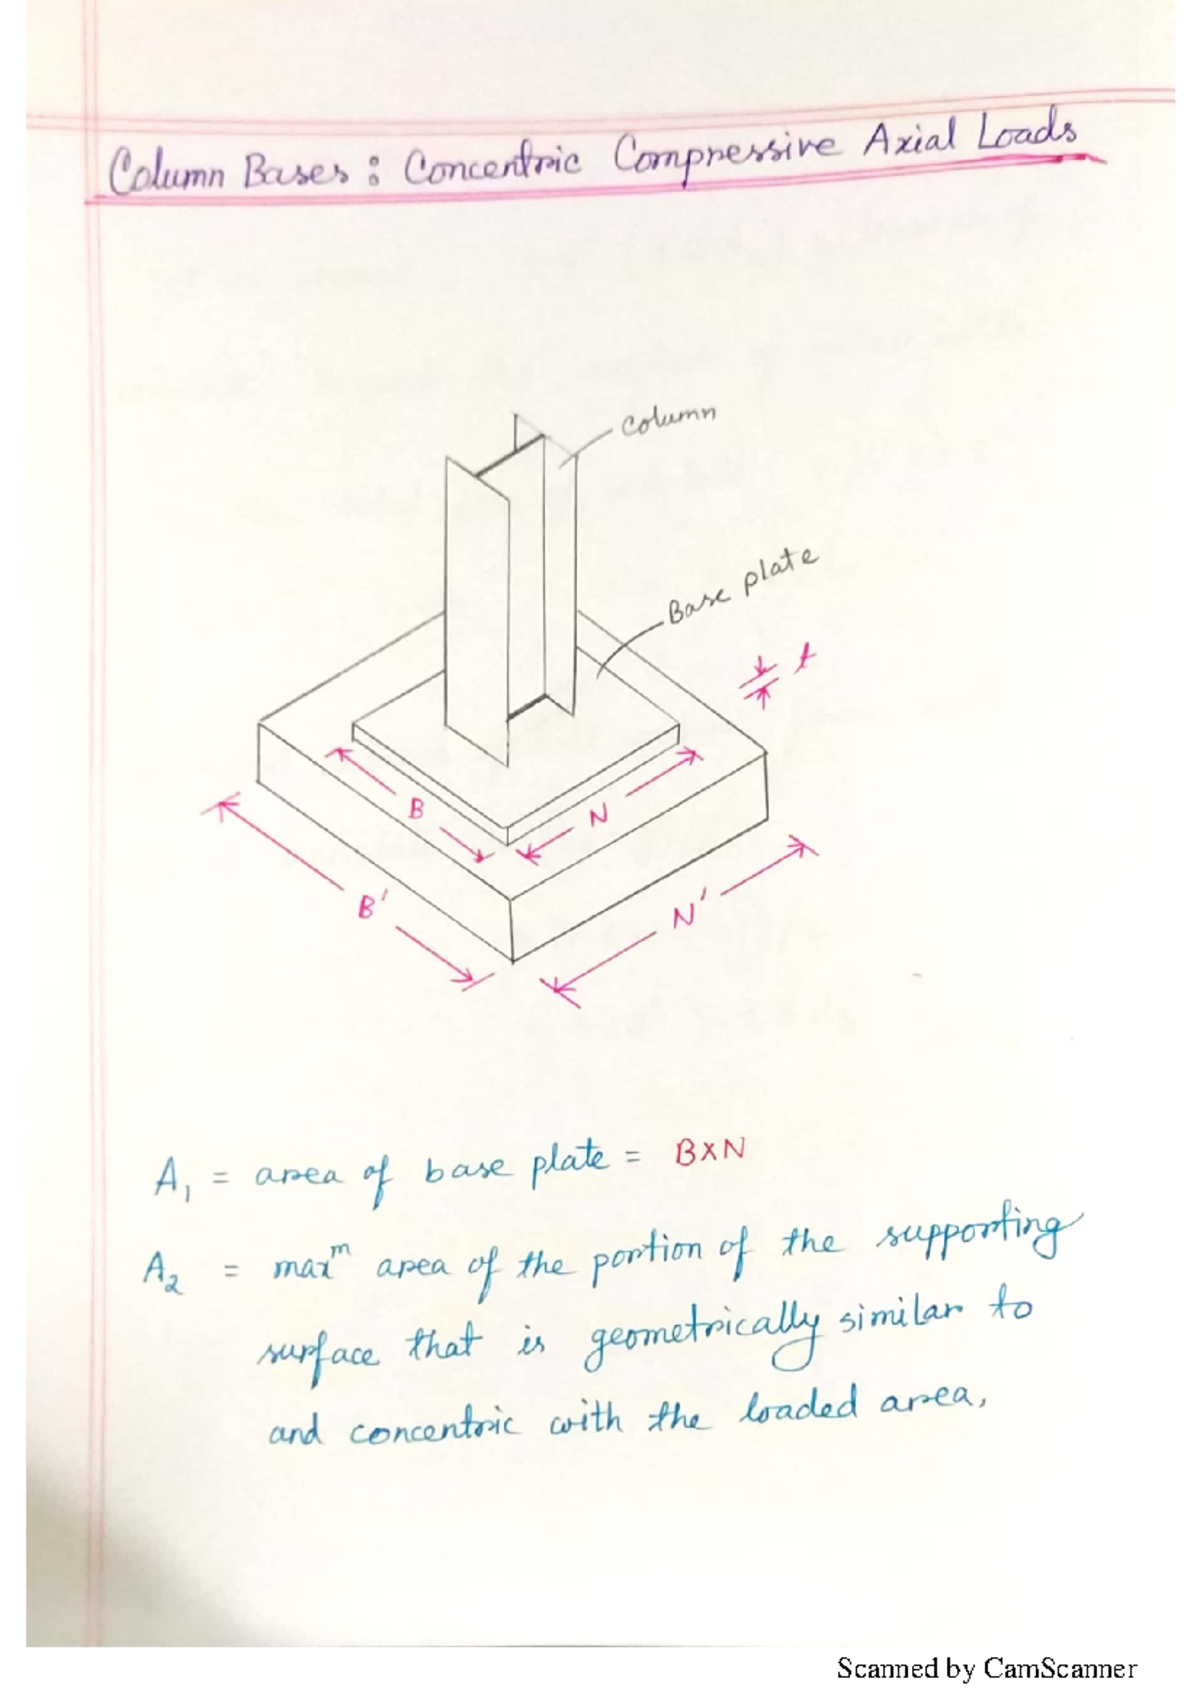 Column Bases : Concentric Compressive Axial Loads
Column
Base plate
t
B
N
B'
N'
A₁ = area of base plate = B×N
A₂ = maxᵐ area of the portion of the supporting
surface that is geometrically similar to
and concentric with the loaded area,
Scanned by CamScanner